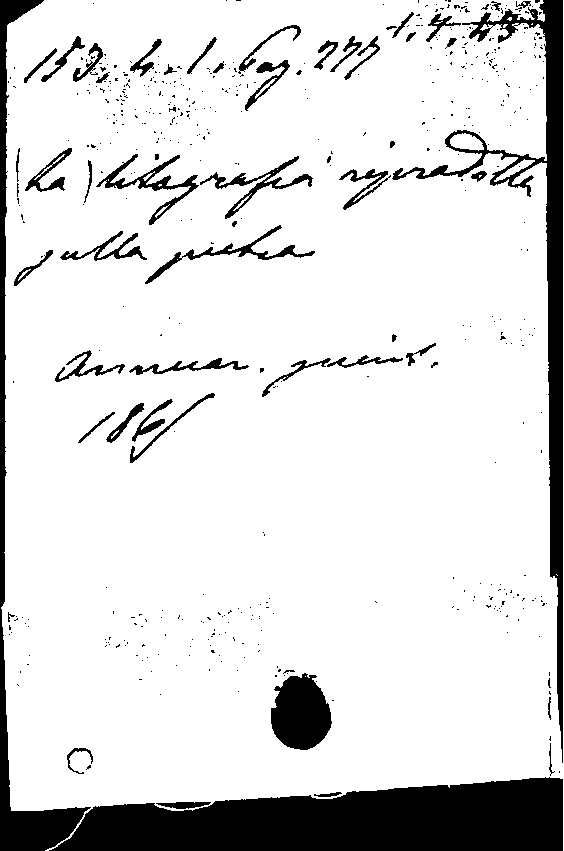 153. 4. 1. Pag. 277 1. 7. 43
(La) litografia riprodotta
sulla pietra
Annuar. scient.
1865